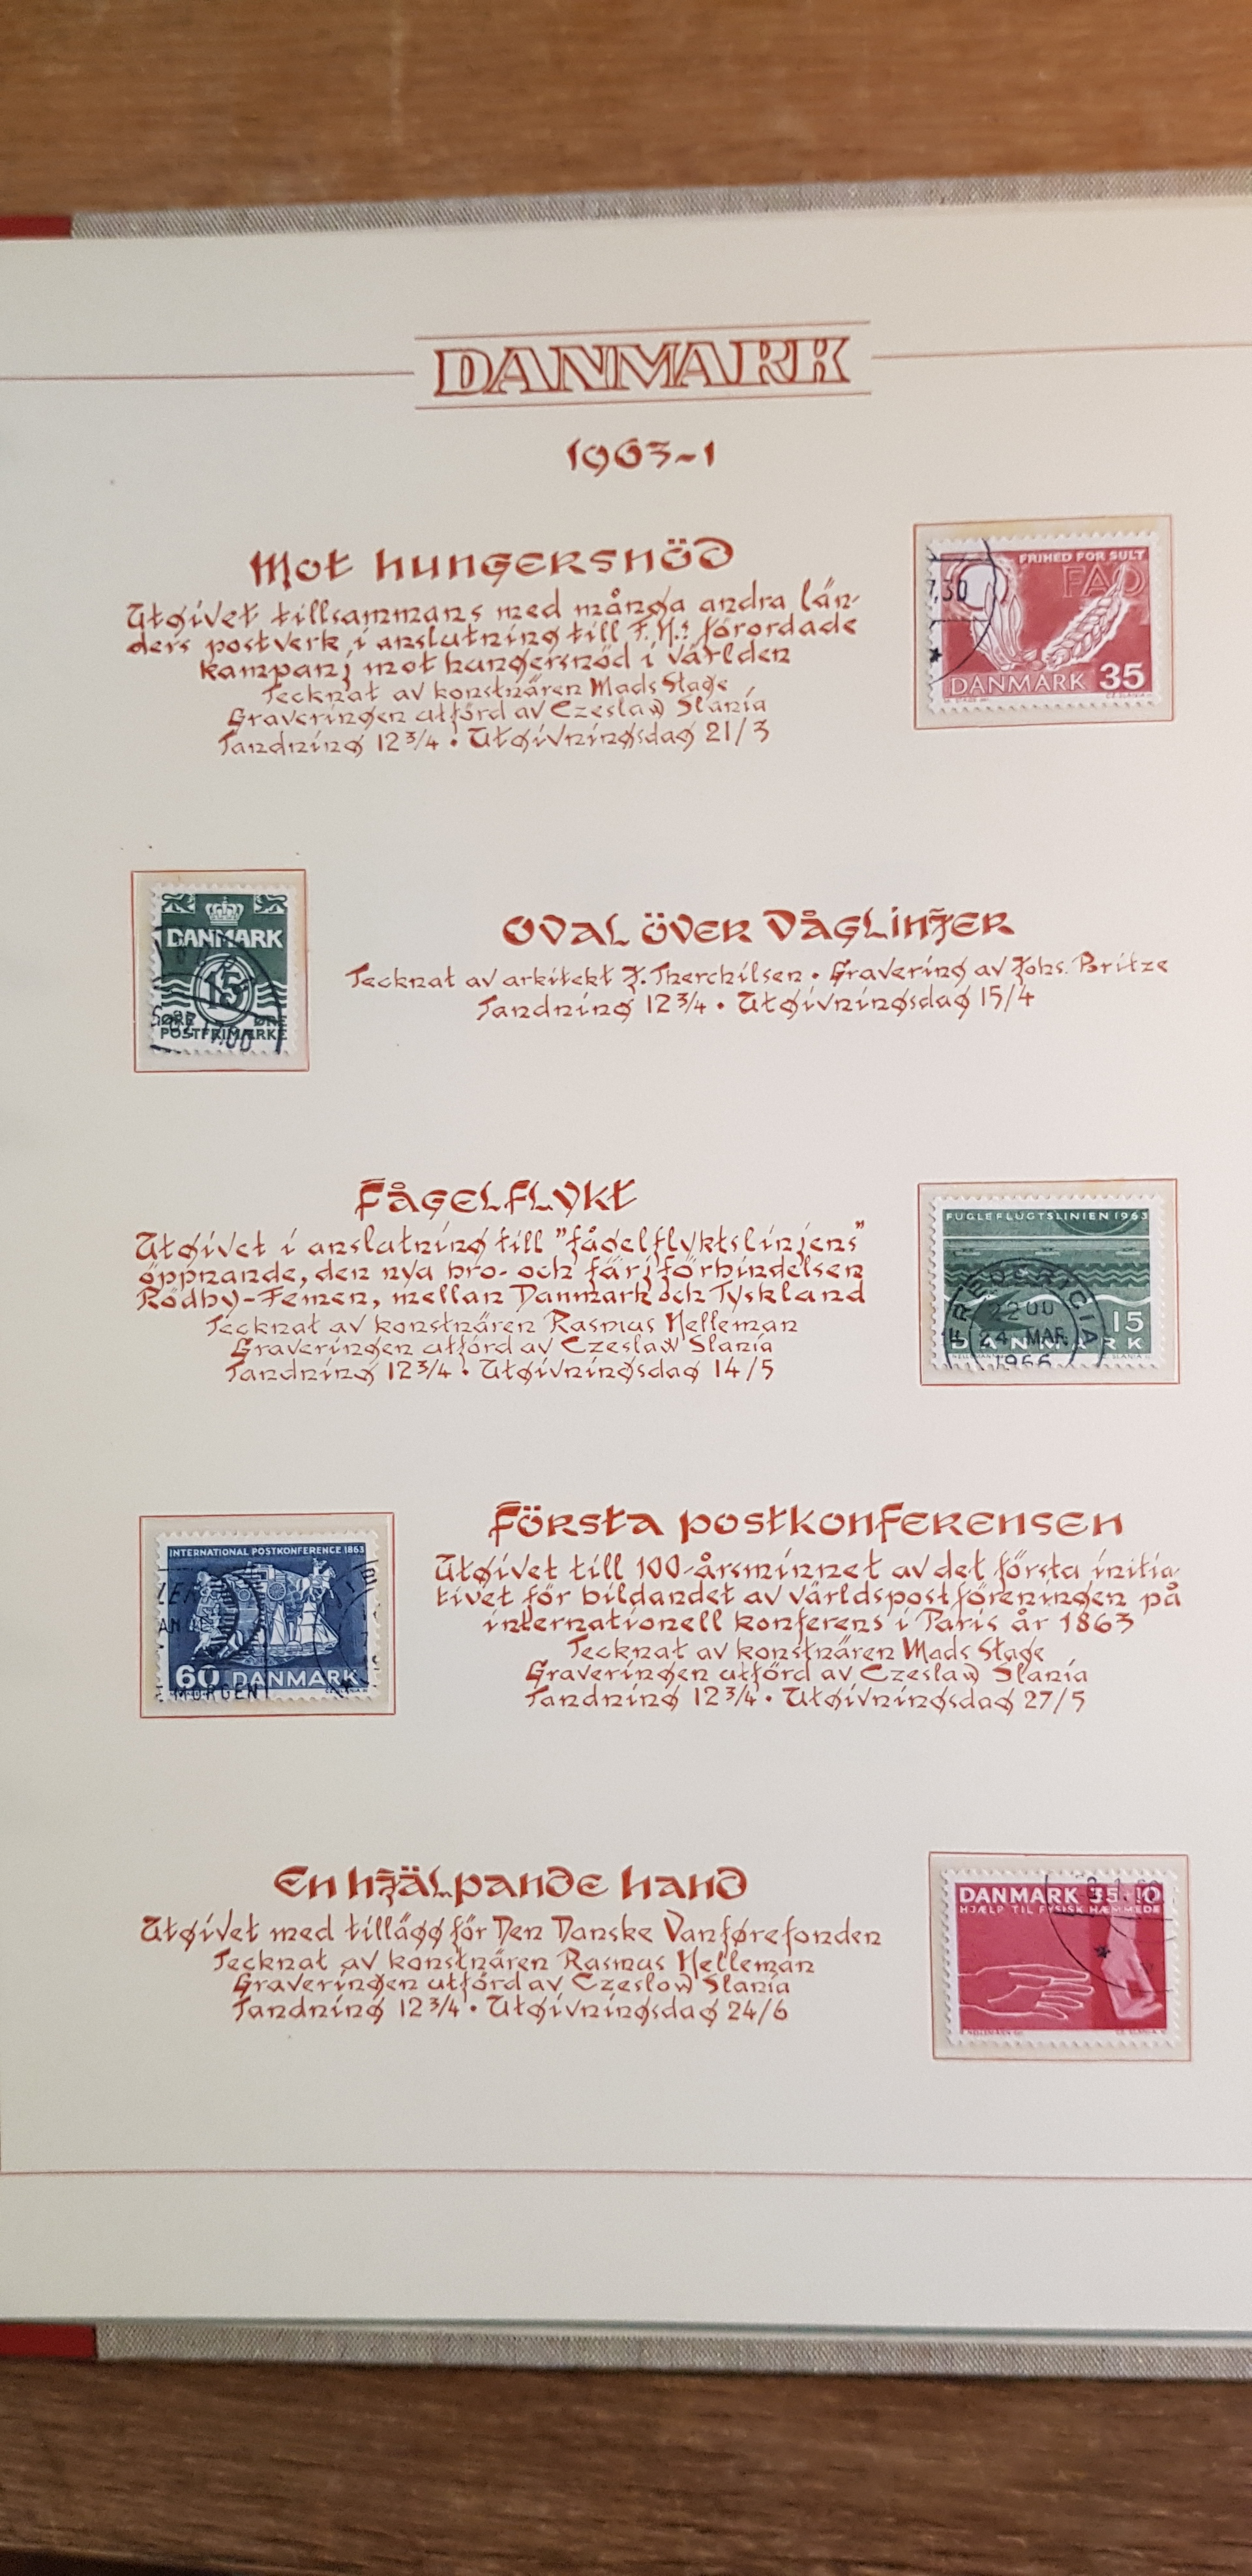 DANMARK
1963-1
Mot hungersnöd
Utgivet tillsammans med många andra län-
ders postverk i anslutning till F.N:s förordade
kampanj mot hungersnöd i världen
Tecknat av konstnären Mads Stage
Graveringen utförd av Czeslaw Slania
Tandning 12 3/4 • Utgivningsdag 21/3
FRIHED FOR SULT
FAO
7.30
DANMARK 35
Oval över våglinjer
Tecknat av arkitekt J. Therchilsen • Gravering av Johs. Britze
Tandning 12 3/4 • Utgivningsdag 15/4
DANMARK
15
ØRE ØRE
POSTFRIMÆRKE
Fågelflykt
Utgivet i anslutning till "fågelflyktslinjens"
öppnande, den nya bro- och färjförbindelsen
Rödby-Femen, mellan Danmark och Tyskland
Tecknat av konstnären Rasmus Nelleman
Graveringen utförd av Czeslaw Slania
Tandning 12 3/4 • Utgivningsdag 14/5
FUGLEFLUGTSLINIEN 1963
FREDERICIA
2200
24 MAR.
1966
15
DANMARK
Första postkonferensen
Utgivet till 100-årsminnet av det första initia-
tivet för bildandet av världspostföreningen på
internationell konferens i Paris år 1863
Tecknat av konstnären Mads Stage
Graveringen utförd av Czeslaw Slania
Tandning 12 3/4 • Utgivningsdag 27/5
INTERNATIONAL POSTKONFERENCE 1863
60 DANMARK
MORGEN
En hjälpande hand
Utgivet med tillägg för Den Danske Vanførefonden
Tecknat av konstnären Rasmus Nelleman
Graveringen utförd av Czeslow Slania
Tandning 12 3/4 • Utgivningsdag 24/6
DANMARK 35+10
HJÆLP TIL FYSISK HÆMMEDE